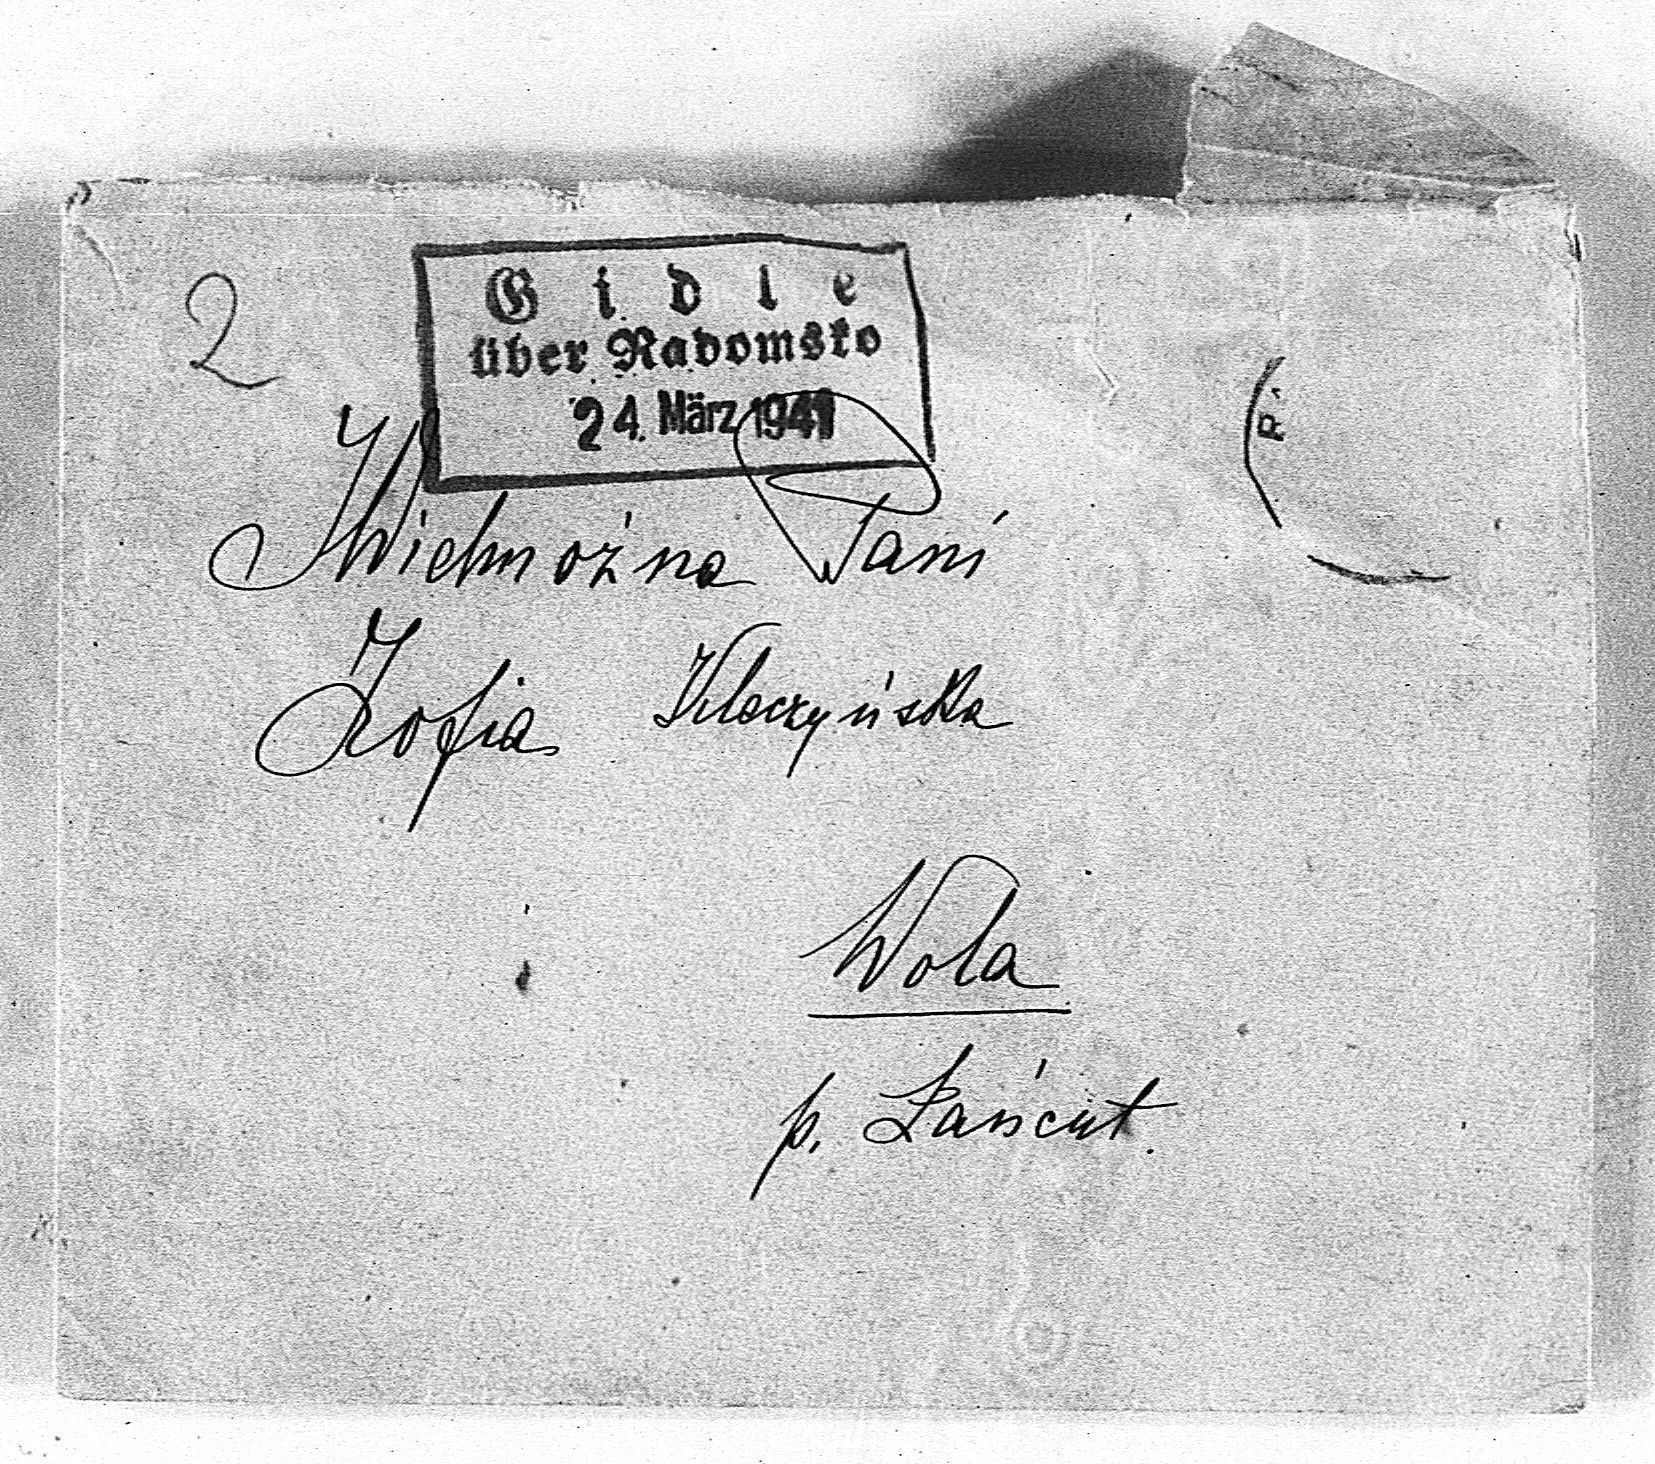 2
Gidle
über Radomsko
24. März 1941
JWielmożna Pani
Zofia Kleczyńska
Wola
p. Łańcut.
R.